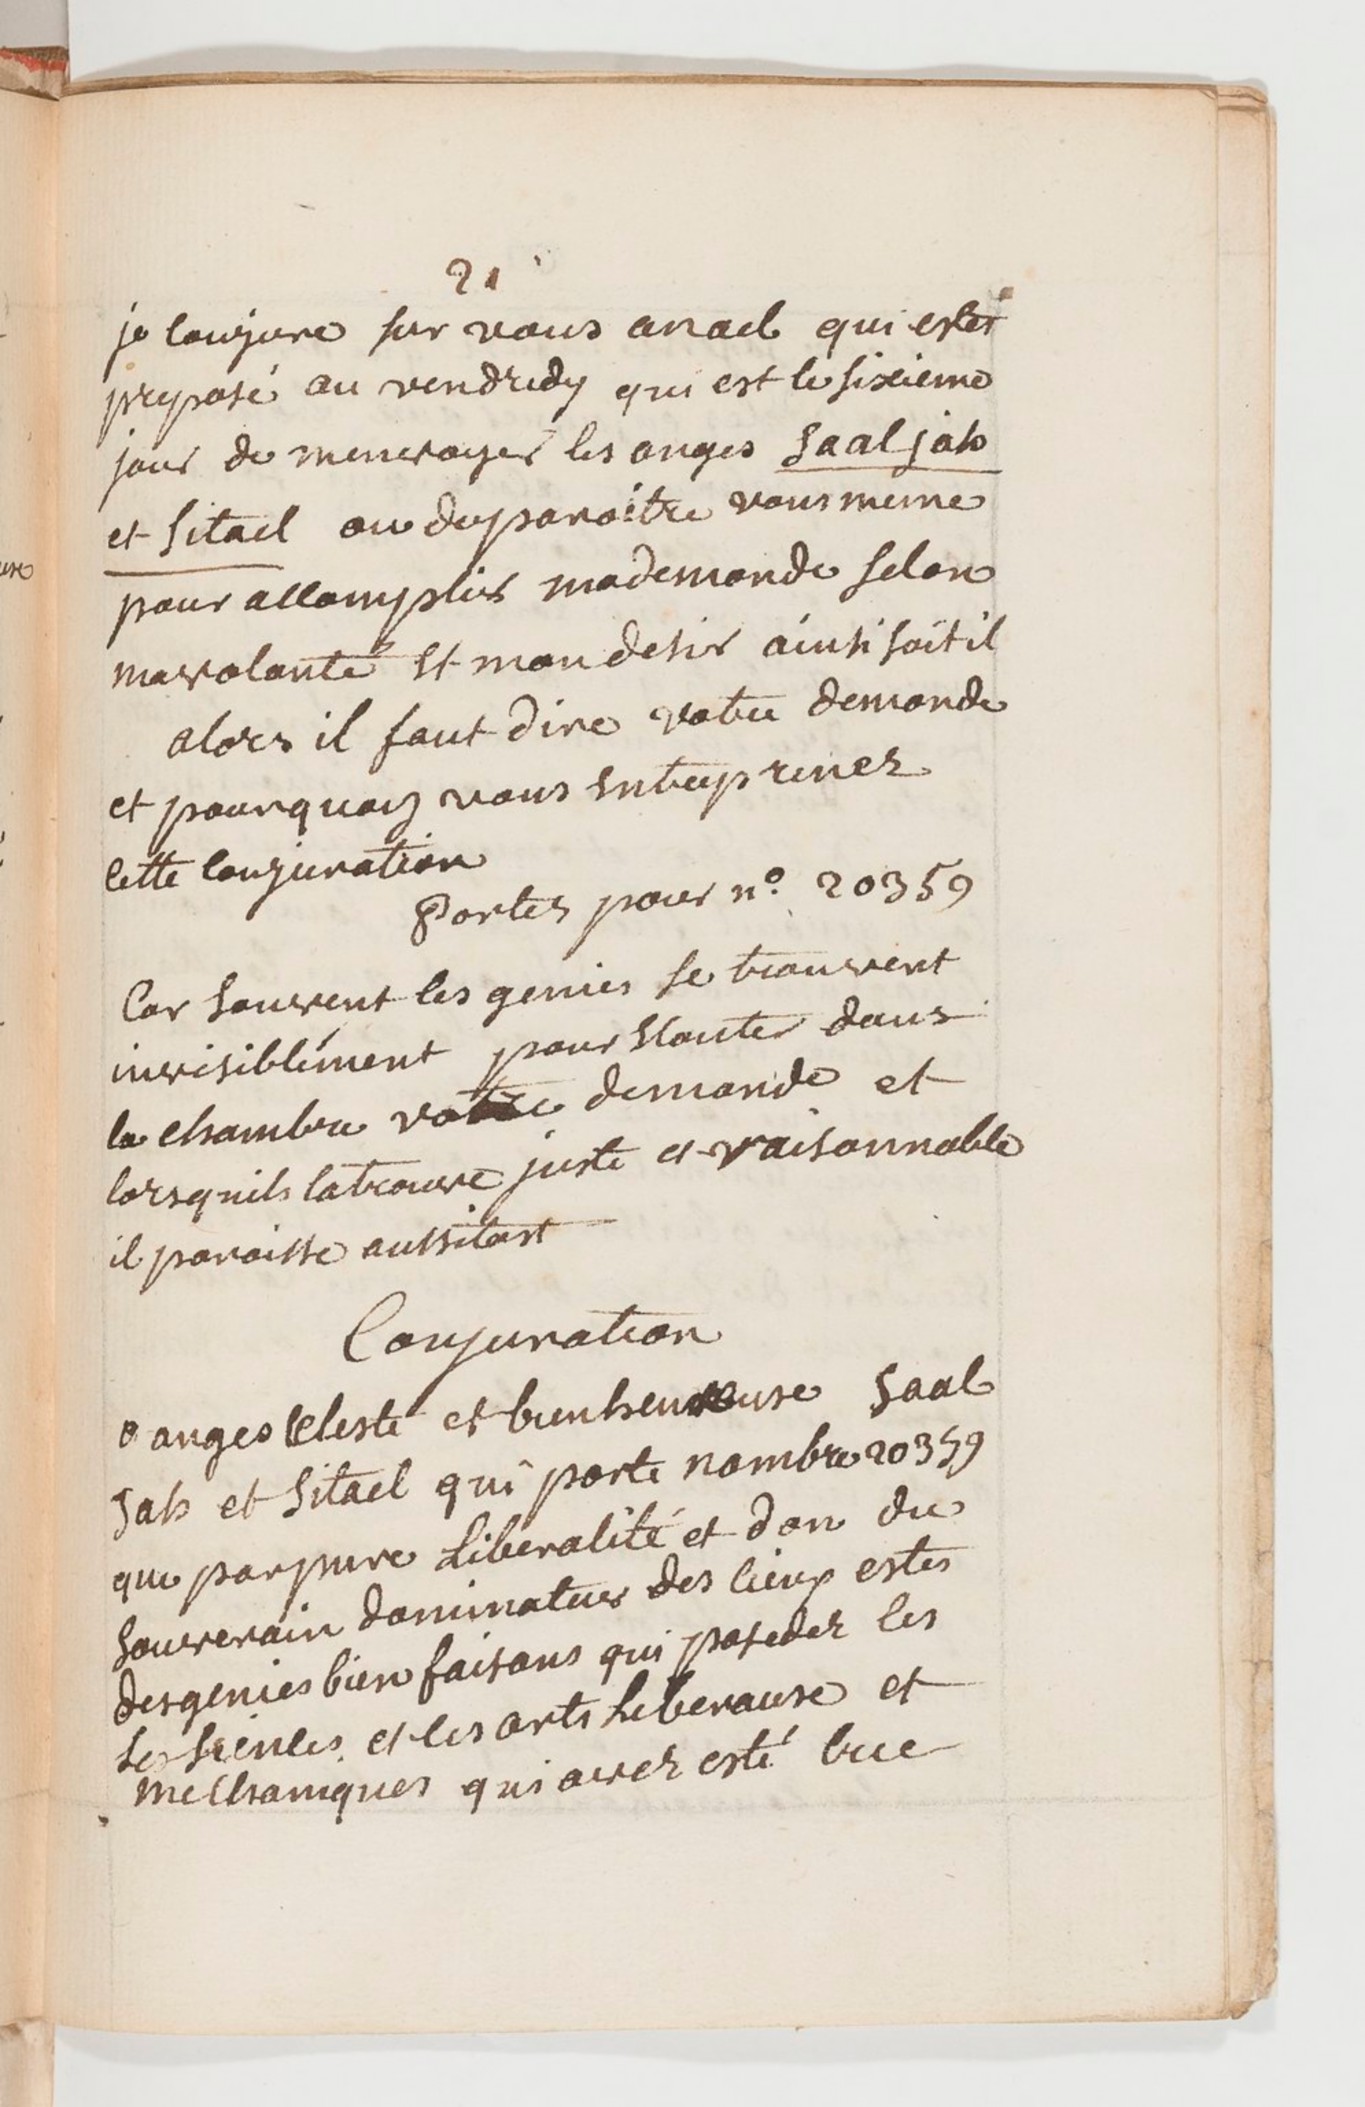 21
je conjure sur vous anael qui estes
preposé au vendredy qui est le sixieme
jour de menvoyer les anges Saaljah
et Sitael ou deparoitre vous meme
pour accomplir mademande selon
mavolonté et mon desir ainsi soit il
alors il faut dire votre demande
et pourquoy vous entreprenez
cette conjuration
Portez pour n.o 20359
Car souvent les genies se trouvent
invisiblément pour ecouter dans
la chambre votre demande et
lorsquils latrouve juste et raisonnable
il paroisse aussitost
Conjuration
o anges celeste et bienheureuse Saal
Jah et Sitael qui porte nombre 20359
que par pure Liberalité et don du
souverain dominateur des cieux estes
des genies bien faisans qui posedez les
les siences et les arts Liberause et
mechaniques qui avez esté cree